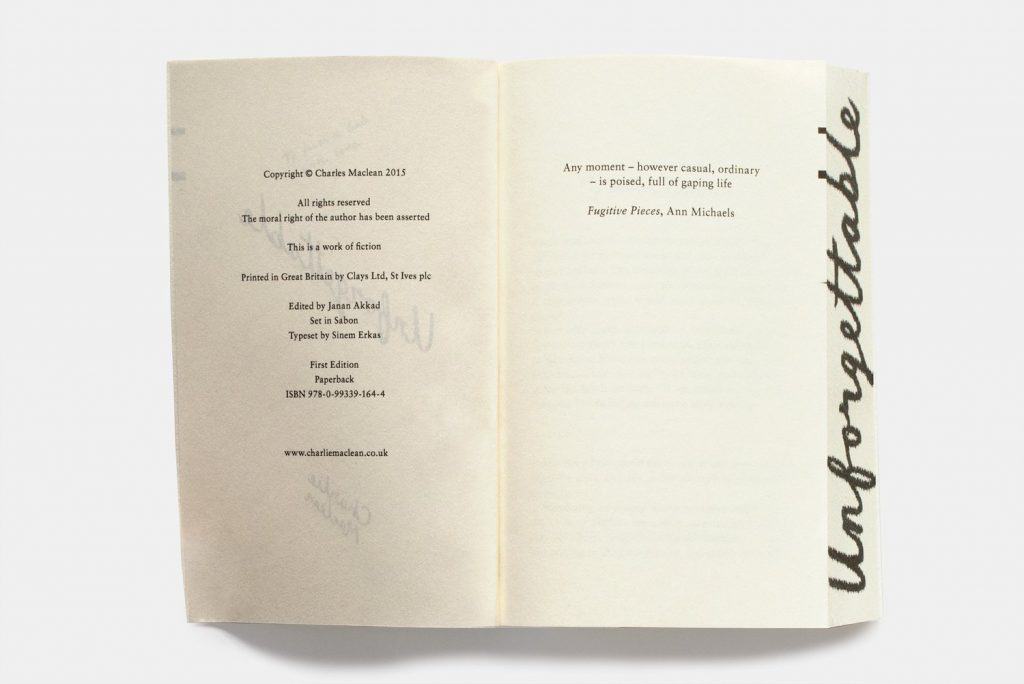 Copyright © Charles Maclean 2015
All rights reserved
The moral right of the author has been asserted
This is a work of fiction
Printed in Great Britain by Clays Ltd, St Ives plc
Edited by Janan Akkad
Set in Sabon
Typeset by Sinem Erkas
First Edition
Paperback
ISBN 978-0-99339-164-4
www.charliemaclean.co.uk
Charlie
Maclean
Any moment – however casual, ordinary
– is poised, full of gaping life
Fugitive Pieces, Ann Michaels
Unforgettable